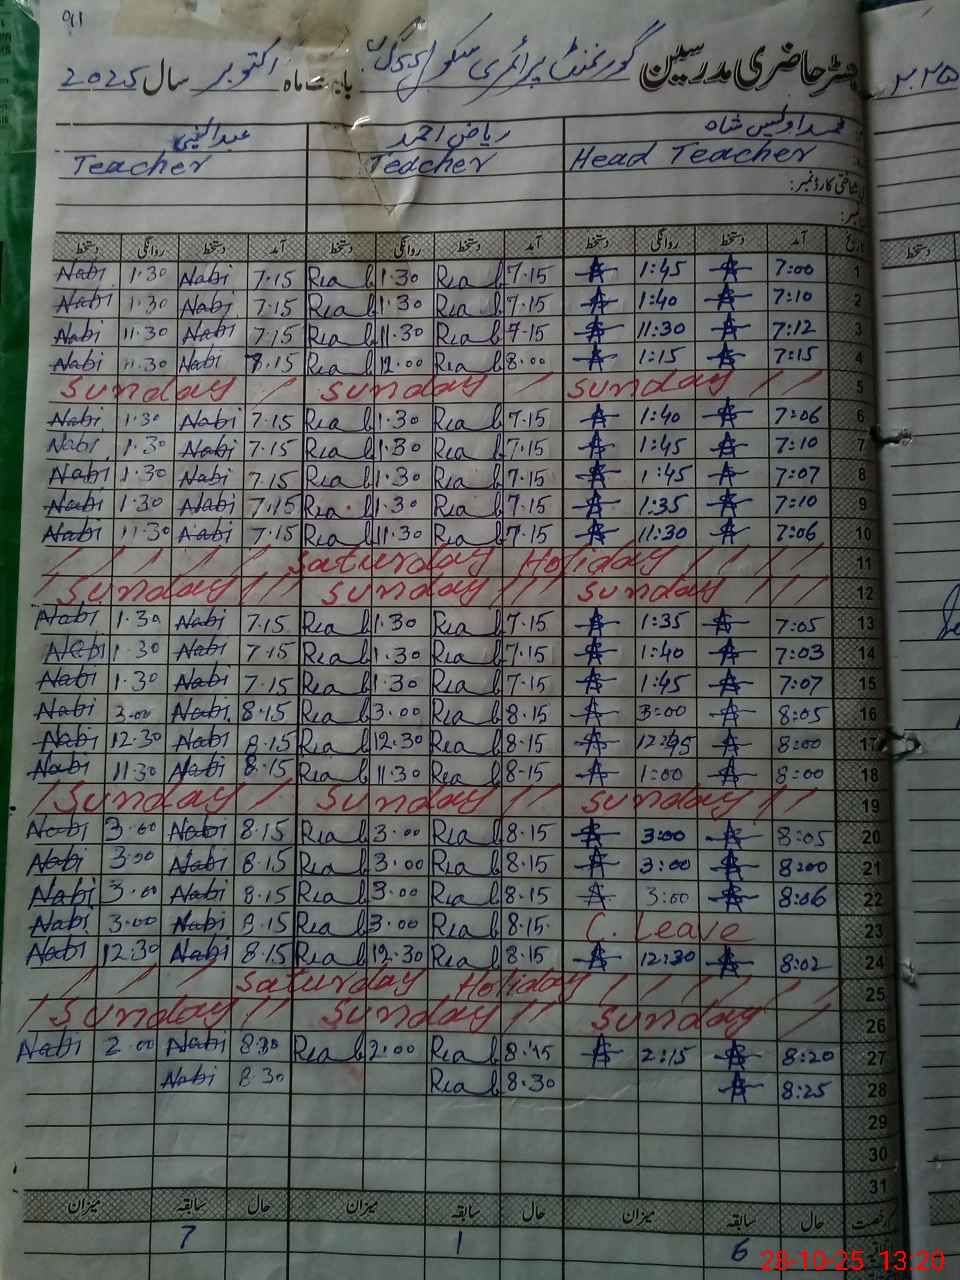 91
رجسٹر حاضری مدرسین گورنمنٹ پرائمری سکول بابت ماہ اکتوبر سال 2025
محمد اویس شاہ ریاض احمد عبدالنبی
Head Teacher Teacher Teacher
شناختی کارڈ نمبر:
تاریخ آمد دستخط روانگی دستخط آمد دستخط روانگی دستخط آمد دستخط روانگی دستخط
Nabi 1.30 Nabi 7.15 Ria 1.30 Ria 7.15 1:45 7:00 1
Nabi 1.30 Nabi 7.15 Ria 1.30 Ria 7.15 1:40 7:10 2
Nabi 11.30 Nabi 7.15 Ria 11.30 Ria 7.15 11:30 7:12 3
Nabi 11.30 Nabi 8.15 Ria 12.00 Ria 8.00 1:15 7:15 4
Sunday Sunday Sunday 5
Nabi 1.30 Nabi 7.15 Ria 1.30 Ria 7.15 1:40 7:06 6
Nabi 1.30 Nabi 7.15 Ria 1.30 Ria 7.15 1:45 7:10 7
Nabi 1.30 Nabi 7.15 Ria 1.30 Ria 7.15 1:45 7:07 8
Nabi 1.30 Nabi 7.15 Ria 1.30 Ria 7.15 1:35 7:10 9
Nabi 11.30 Nabi 7.15 Ria 11.30 Ria 7.15 11:30 7:06 10
Saturday Holiday 11
Sunday Sunday Sunday 12
Nabi 1.30 Nabi 7.15 Ria 1.30 Ria 7.15 1:35 7:05 13
Nabi 1.30 Nabi 7.15 Ria 1.30 Ria 7.15 1:40 7:03 14
Nabi 1.30 Nabi 7.15 Ria 1.30 Ria 7.15 1:45 7:07 15
Nabi 3.00 Nabi 8.15 Ria 3.00 Ria 8.15 3:00 8:05 16
Nabi 12.30 Nabi 8.15 Ria 12.30 Ria 8.15 12:45 8:00 17
Nabi 11.30 Nabi 8.15 Ria 11.30 Ria 8.15 1:00 8:00 18
Sunday Sunday Sunday 19
Nabi 3.00 Nabi 8.15 Ria 3.00 Ria 8.15 3:00 8:05 20
Nabi 3.00 Nabi 8.15 Ria 3.00 Ria 8.15 3:00 8:00 21
Nabi 3.00 Nabi 8.15 Ria 3.00 Ria 8.15 3:00 8:06 22
Nabi 3.00 Nabi 8.15 Ria 3.00 Ria 8.15 C. Leave 23
Nabi 12.30 Nabi 8.15 Ria 12.30 Ria 8.15 12:30 8:02 24
Saturday Holiday 25
Sunday Sunday Sunday 26
Nabi 2.00 Nabi 8.30 Ria 2:00 Ria 8.15 2:15 8:20 27
Nabi 8.30 Ria 8.30 8:25 28
29
30
31
رخصت حال سابقہ میزان حال سابقہ میزان حال سابقہ میزان
7 1 6
28-10-25 13:20